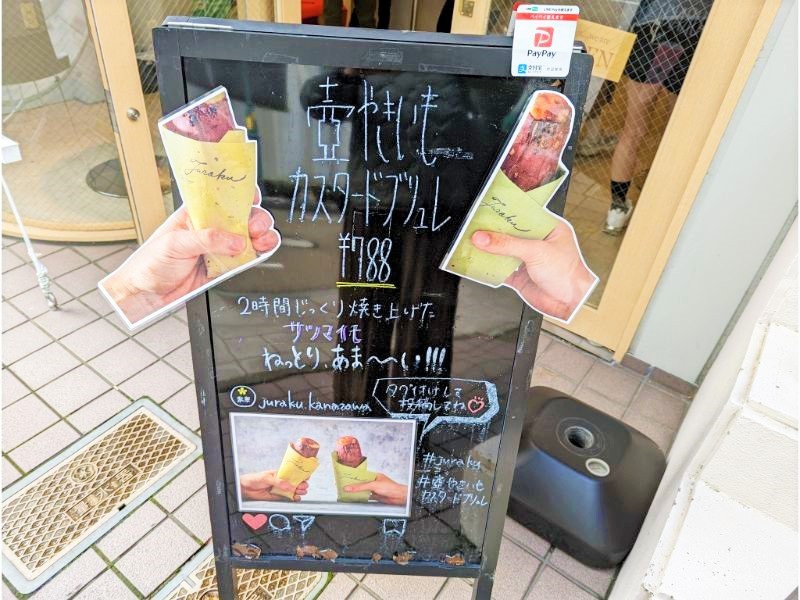 PayPay
支付宝
壺やきいも
カスタードブリュレ
¥788
Juraku
Juraku
2時間じっくり焼き上げた
サツマイモ
ねっとり、あま〜〜い!!!
juraku.kanazawa
タグ付けして
投稿してね
#juraku
#壺やきいも
カスタードブリュレ